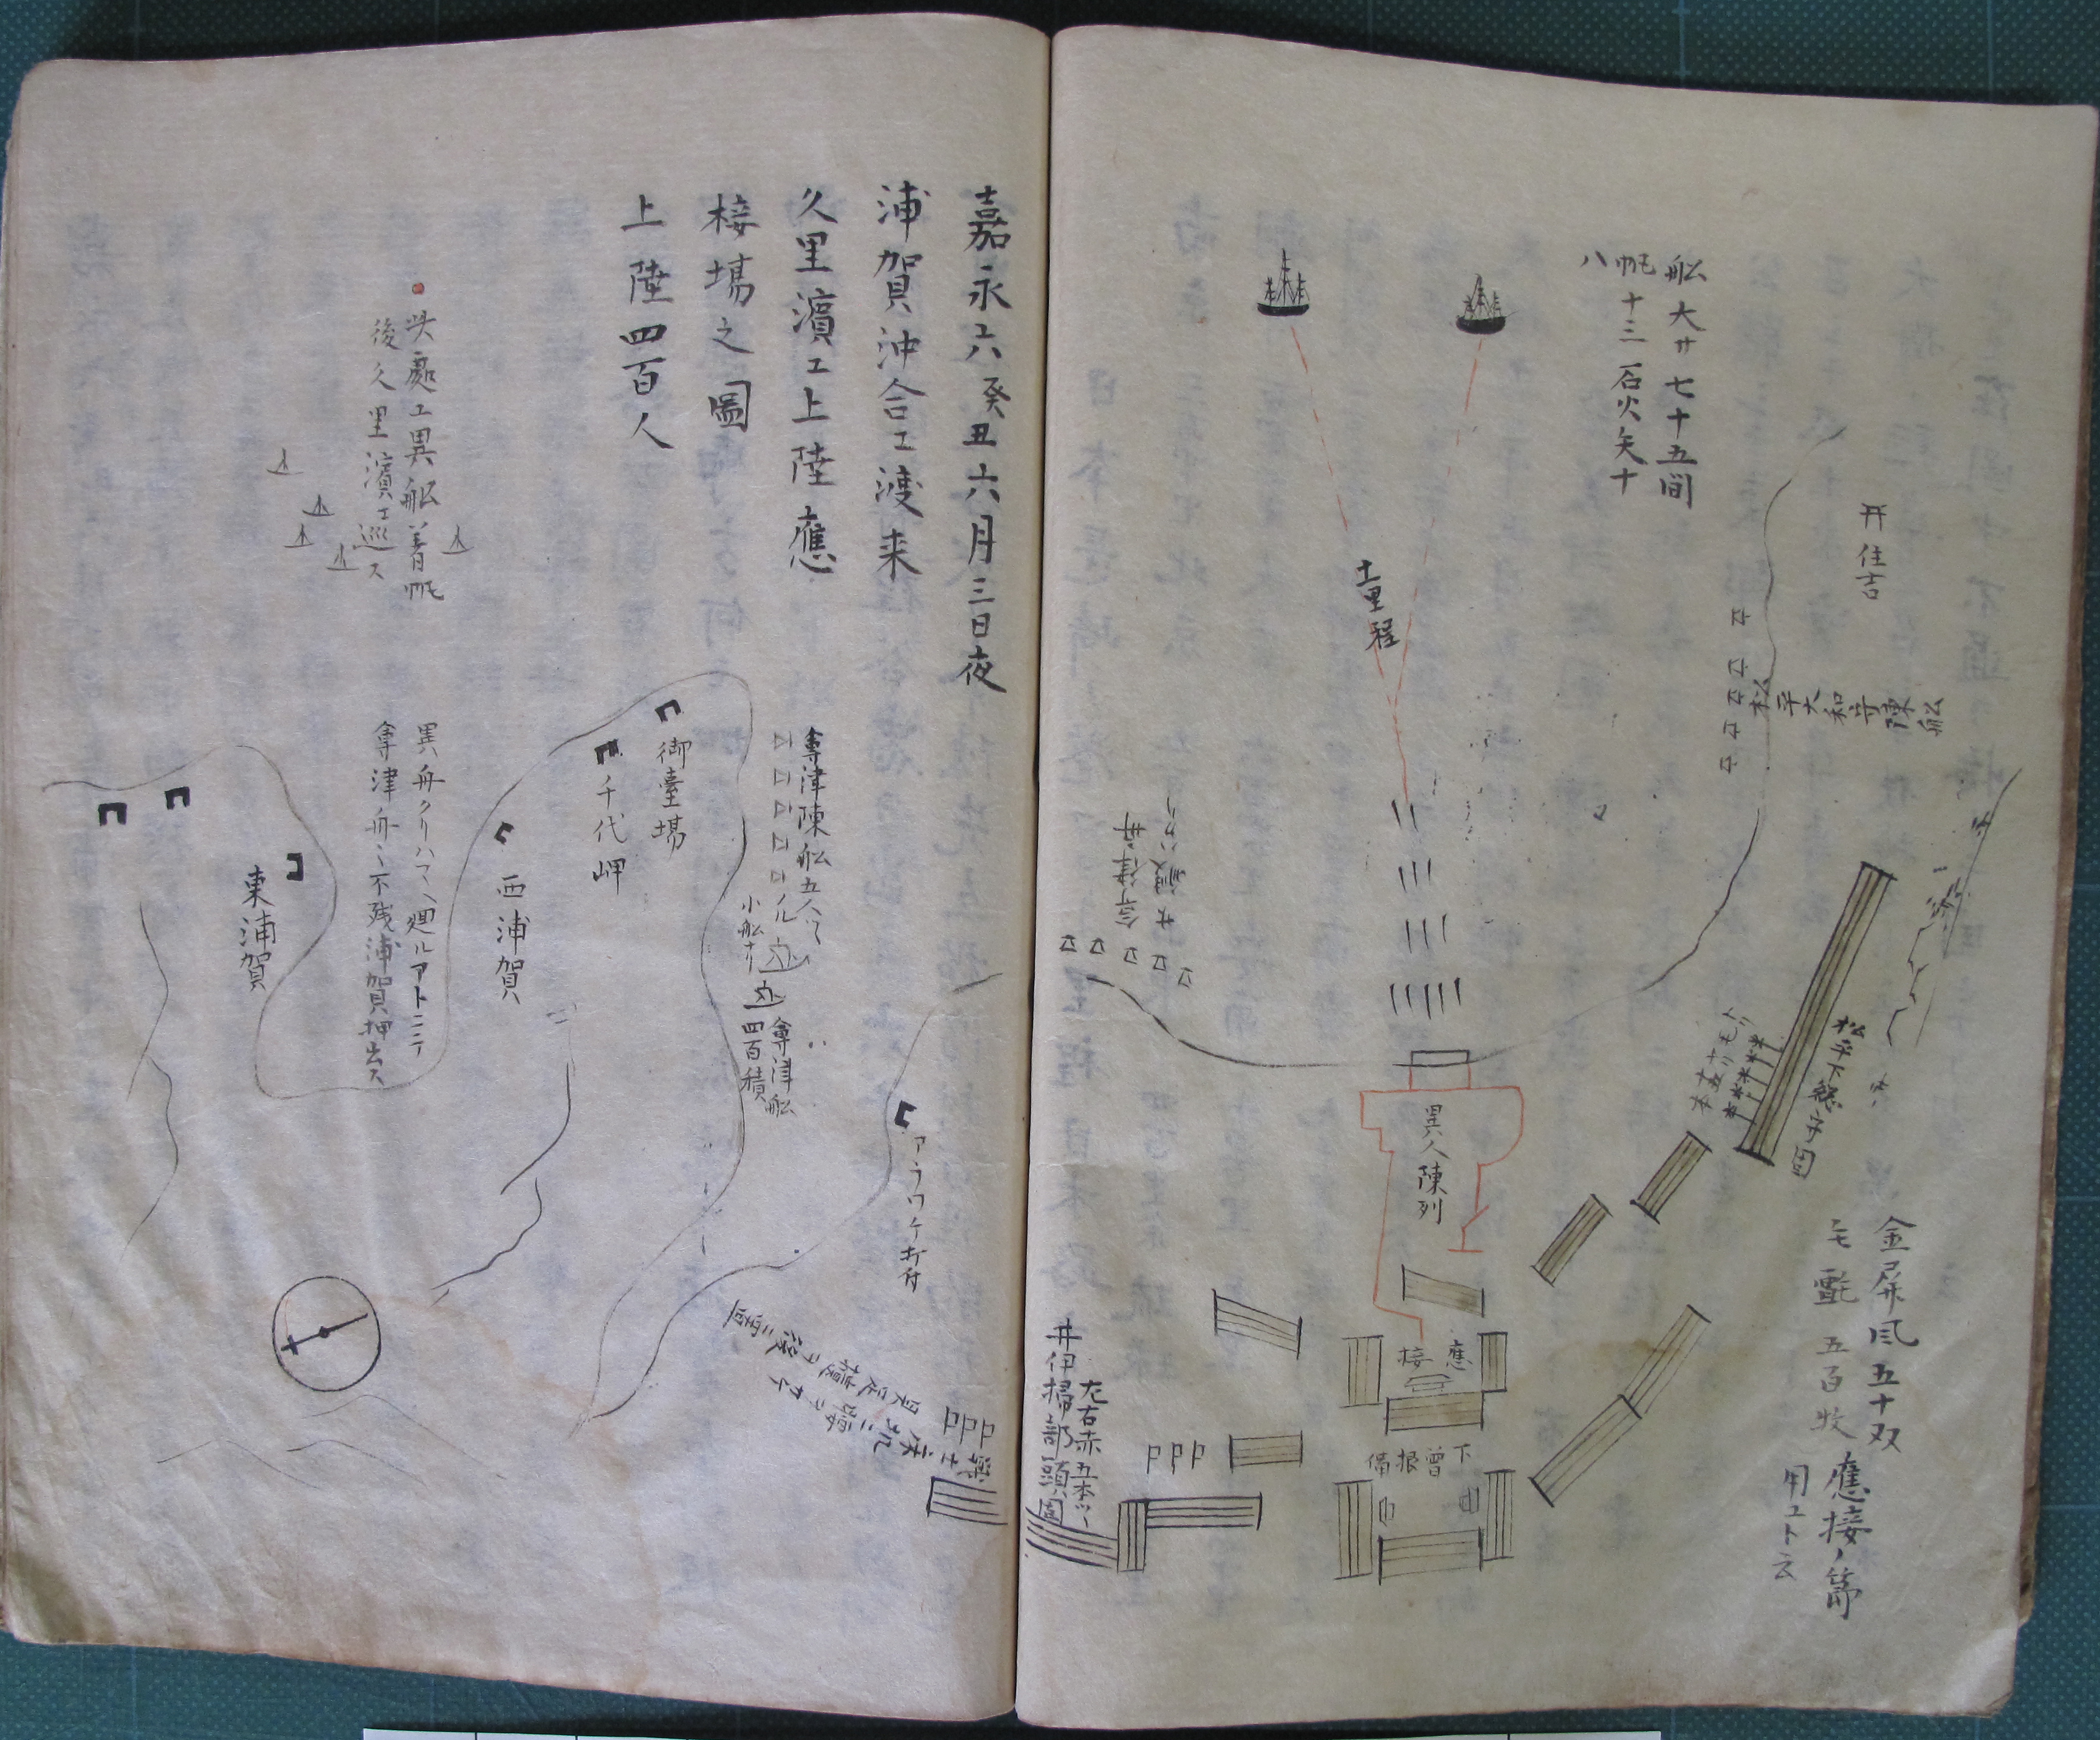 船大サ七十五間
帆十三石火矢十
八
开住吉
松平大和守陳船
十里程
會津
松平下総守固
異人陳列
金屏風五十双
毛氈五百枚
應接ノ節
用ユト云
應接
下曽根備
左右赤五本ツヽ
井伊掃部頭固
嘉永六癸丑六月三日夜
浦賀沖合エ渡来
久里濱エ上陸應
接場之圖
上陸四百人
此處エ異船着帆
後久里濱エ巡ス
會津陳船五
小船ナリ
會津船
四百積
御臺場
千代岬
西浦賀
異舟クリハマヘ廻ルアトニテ
會津舟不残浦賀押出ス
東浦賀
アラワケ